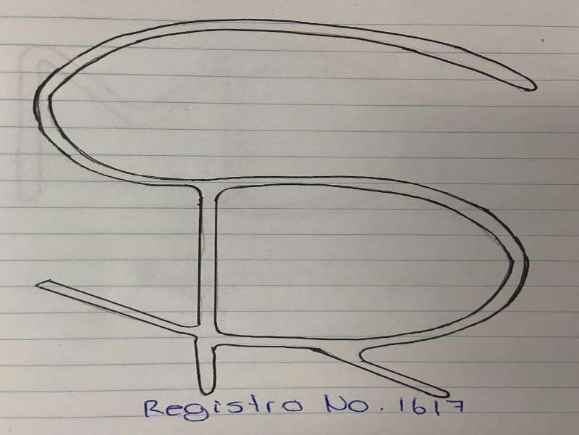 Registro No. 1617